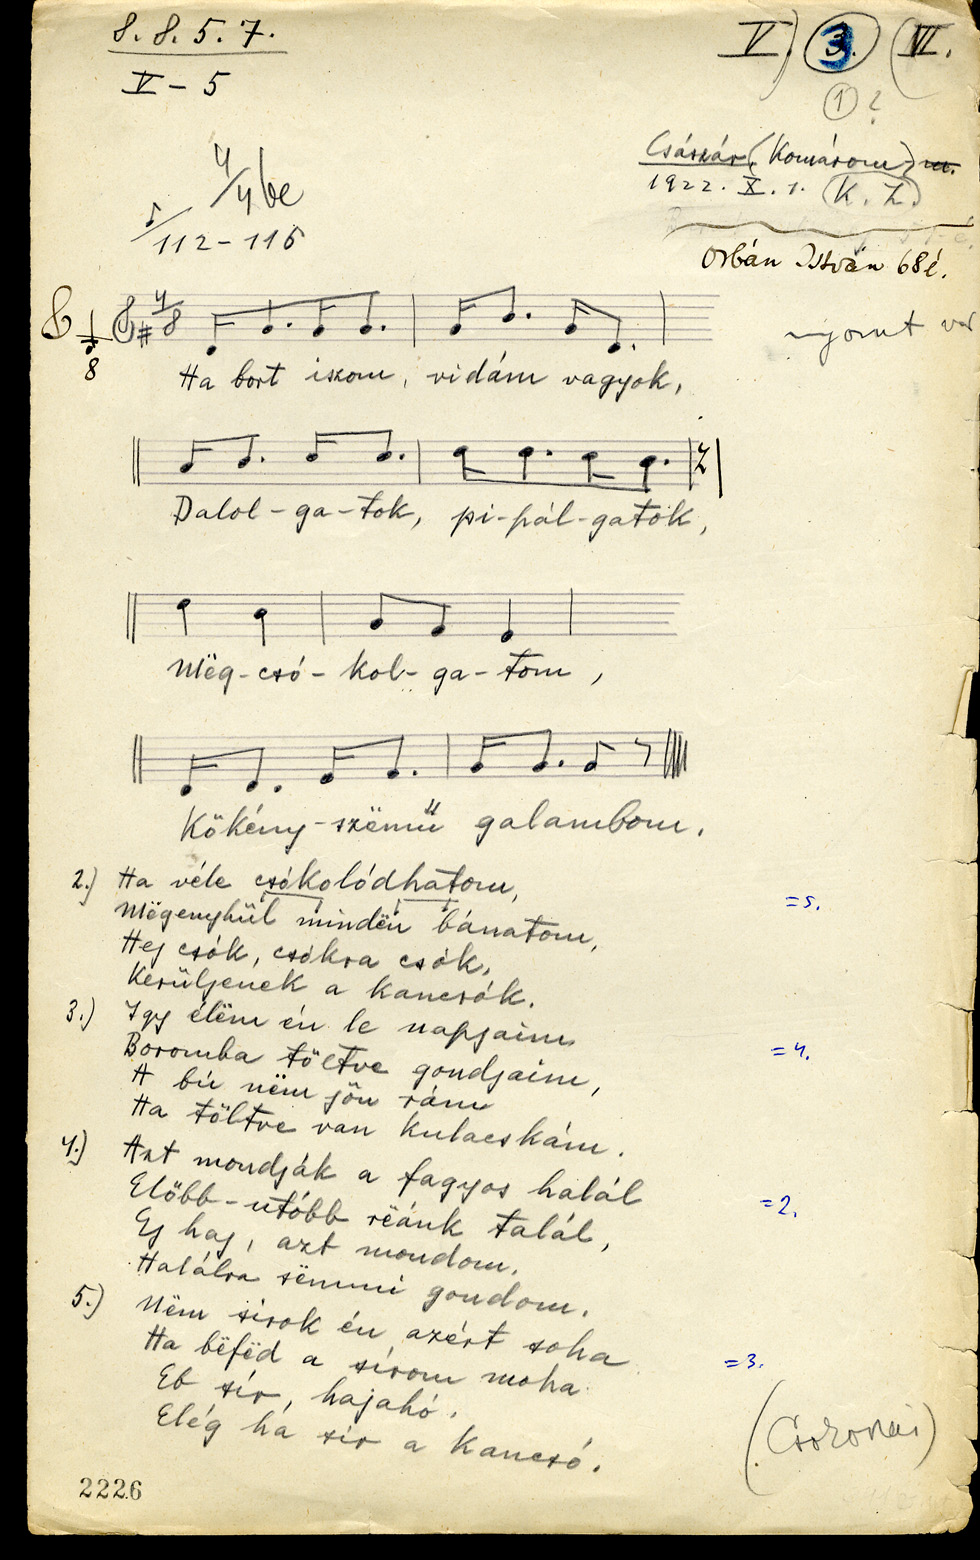 8. 8. 5. 7.
V - 5
V) 3. (VI.
1 ?
4/4 be
112 - 116
Császár (Komárom) m.
1922. X. 1. (K. Z.)
Orbán István 68 é.
4/8
8
nyomt
Ha bort iszom, vidám vagyok,
Dalol - ga - tok, pi - pál - gatok,
Mëg - csó - kol - ga - tom,
Kökény - szëmű galambom.
2.) Ha véle csókolódhatom,
=5.
Mëgenyhül mindën bánatom,
Hej csók, csókra csók,
Kerüljenek a kancsók.
3.) Igy élëm én le napjaim
=4.
Boromba töltve gondjaim,
A bú nëm jön rám
Ha töltve van kulacskám.
4.) Azt mondják a fagyos halál
=2.
Előbb - utóbb rëánk talál,
Ej haj, azt mondom,
Halálra sëmmi gondom.
5.) Nëm sirok én azért soha
=3.
Ha bëfëd a sírom moha
Eb sír, hajahó.
Elég há sír a kancsó.
(Csokonai)
2226